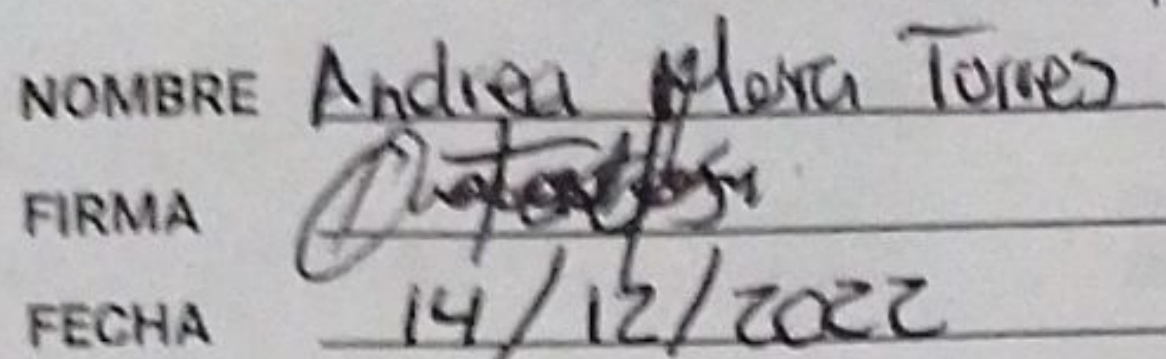 NOMBRE Andrea Mora Torres
FIRMA
FECHA 14/12/2022